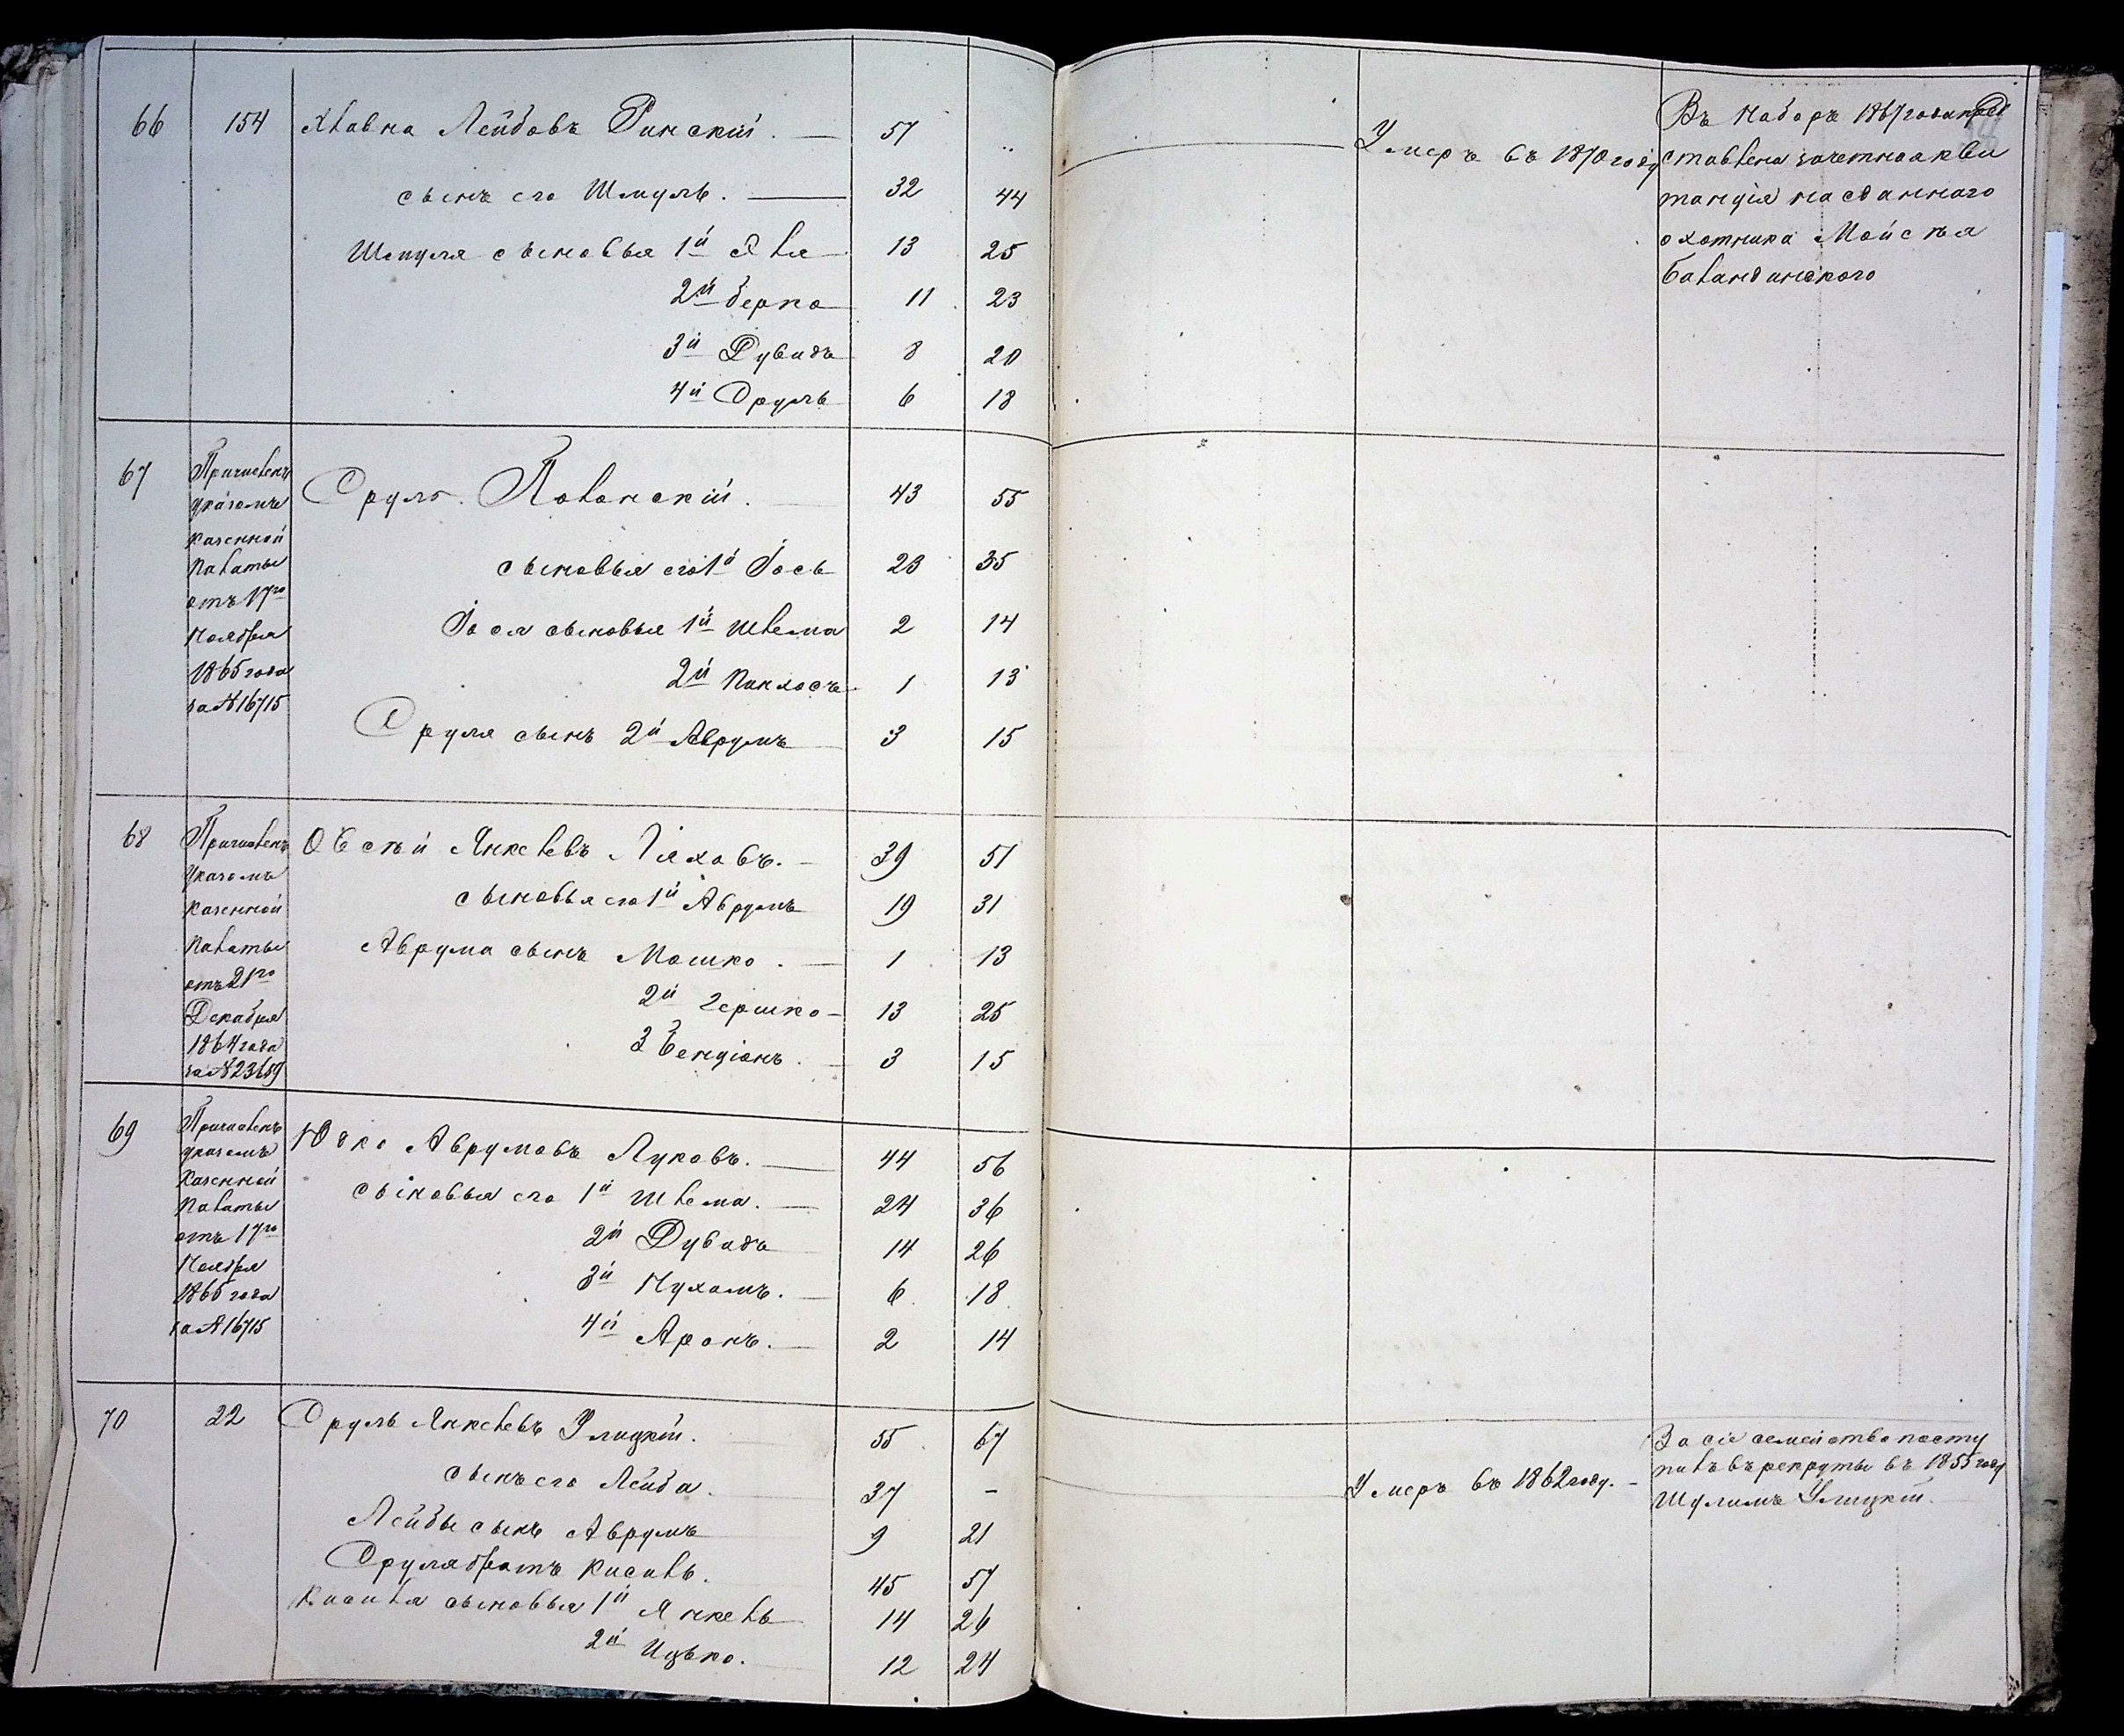 66 154 Хавна Лейбовъ Римскій. 57 „
сынъ его Шмуль. 32 44
Шмуля сыновья 1й Эля 13 25
2й Берко 11 23
3й Дувидъ 8 20
4й Сруль 6 18
Умеръ въ 1870 году
Въ Наборъ 1867 года пред
ставлена зачетная кви
танція на сданнаго
охотника Мойсѣя
Баландинского
67 Причисленъ
указомъ
казенной
палаты
отъ 17го
Ноября
1865 года
за № 16715
Сруль Полонскій. 43 55
сыновья его 1й Іось 23 35
Іося сыновья 1й Шлема 2 14
2й Пинхосъ 1 13
Сруля сынъ 2й Аврумъ 3 15
68 Причисленъ
Указомъ
казенной
палаты
отъ 21го
Декабря
1864 года
за № 23689
Овсѣй Янкелевъ Ляховъ. 39 51
сыновья его 1й Аврумъ 19 31
Аврума сынъ Мошко. 1 13
2й Гершко 13 25
3 Бенціонъ. 3 15
69 Причисленъ
указомъ
Казенной
Палаты
отъ 17го
Ноября
1865 года
за № 16715
Юдко Аврумовъ Луковъ. 44 56
сыновья его 1й Шлема. 24 36
2й Дувидъ 14 26
3й Нухомъ. 6 18
4й Аронъ. 2 14
70 22 Сруль Янкелевъ Улицкій. 55 67
сынъ его Лейба. 37 –
Лейбы сынъ Аврумъ 9 21
Сруля братъ Кисиль. 45 57
Кисиля сыновья 1й Янкель 14 26
2й Ицько. 12 24
Умеръ въ 1862 году.
За сіе семейство посту
пилъ въ рекруты въ 1855 году
Шулимъ Улицкій.